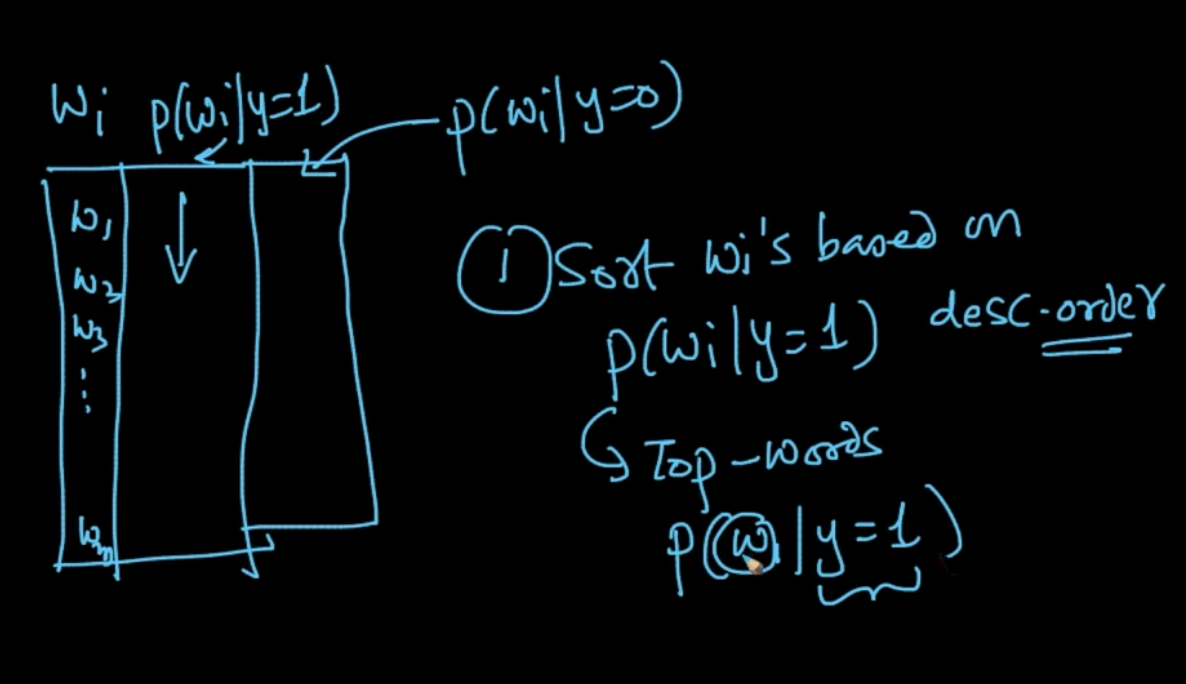 Wi P(Wi|y=1) P(Wi|y=0)
W1
W2
W3
⋮
Wm
1 Sort Wi's based on
P(Wi|y=1) desc-order
Top-words
P(W|y=1)